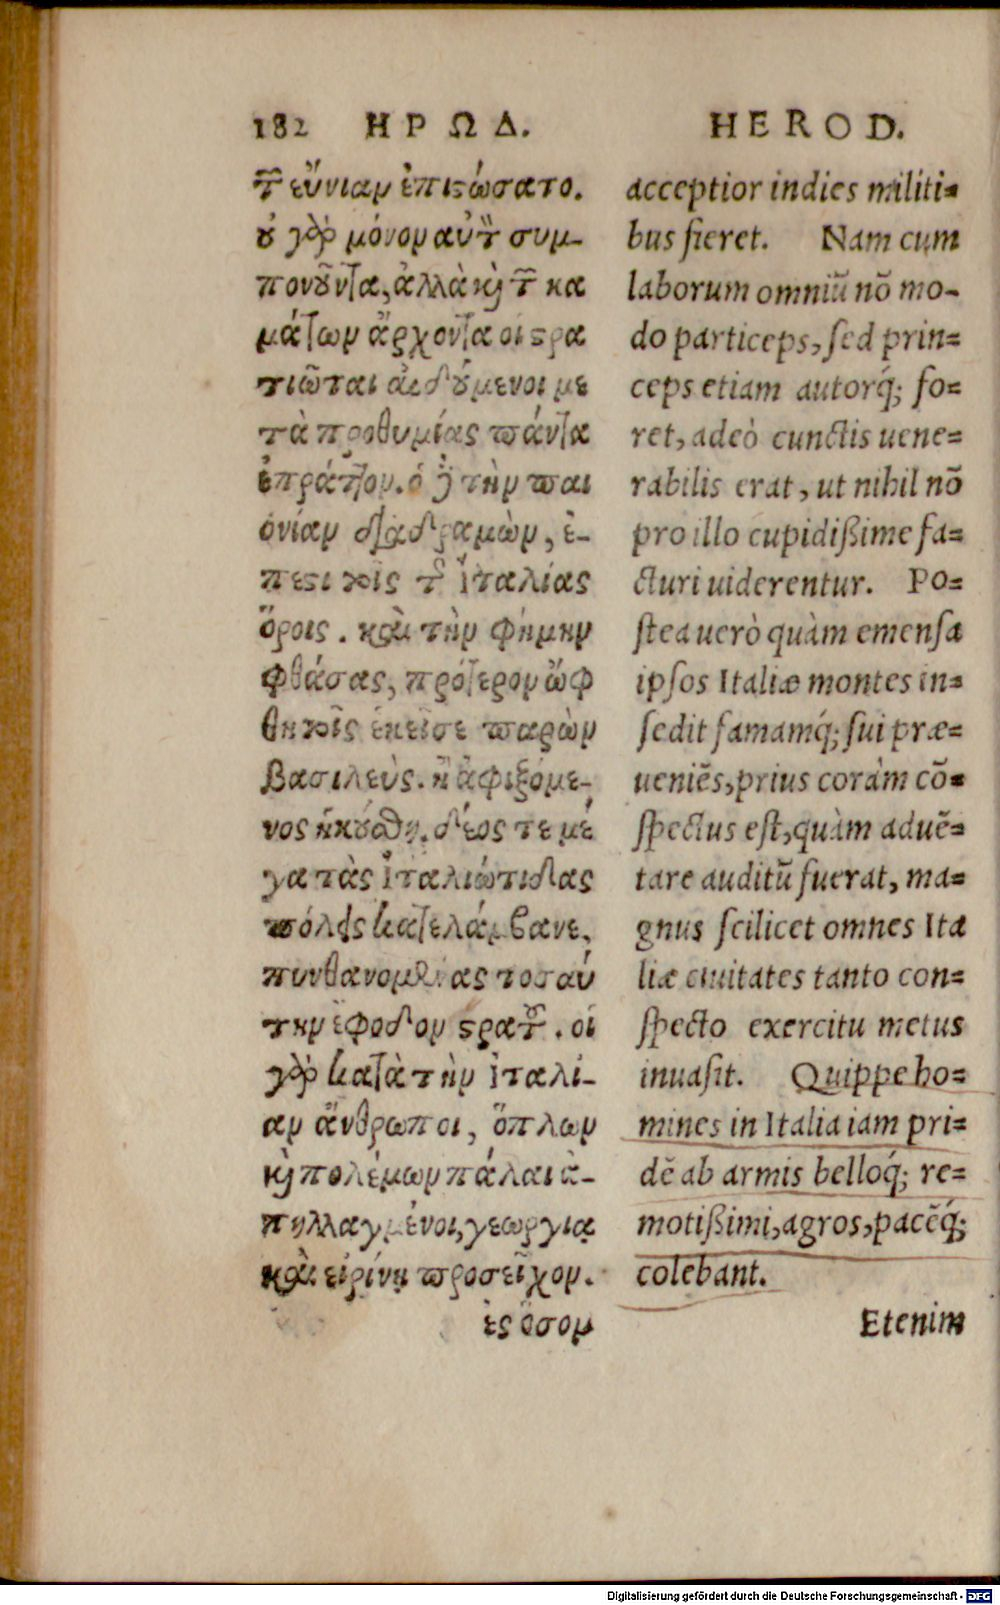 182 ΗΡΩΔ.
τ͂ εὔνιαν ἐπιϛώσατο.
ȣ γὰρ μόνον αὐτ͂ συμ-
πονȣ͂ντα, ἀλλὰ κὶ τ͂ κα
μάτων ἄρχοντα οἱ ϛρα
τιῶται αἰδȣ́μενοι με
τὰ προθυμίας πάντα
ἐπράτ7ον. ὁ ἢ τὴν παι
ονίαν διαδραμὼν, ἐ-
πεϛι τοῖς τ͂ Ἰταλίας
ὅροις. καὶ τὴν φήμην
φθάσας, πρότερον ὤφ
θη τοῖς ἐκεῖσε παρὼν
βασιλεὺς. ἢ ἀφιξόμε-
νος ἠκȣ́σθη. δέος τε μέ
γα τὰς Ἰταλιώτιδας
πόλεις κατελάμβανε,
πυνθανομένας τοσαύ
την ἔφοδον ϛρατ͂. οἱ
γὰρ κατὰ τὴν Ἰταλί-
αν ἄνθρωποι, ὅπλων
κὶ πολέμων πάλαι ἀ-
πηλλαγμένοι, γεωργίᾳ
καὶ εἰρίνῃ προσεῖχον.
ἐς ὅσον
HEROD.
acceptior indies militi=
bus fieret. Nam cum
laborum omniũ nõ mo-
do particeps, sed prin=
ceps etiam autorq́; fo=
ret, adeò cunctis uene=
rabilis erat, ut nihil nõ
pro illo cupidißime fa=
cturi uiderentur. Po=
stea uerò quàm emensa
ipsos Italiæ montes in=
sedit famamq́; sui præ=
ueniẽs, prius coràm cõ=
spectus est, quàm aduẽ=
tare auditũ fuerat, ma=
gnus scilicet omnes Ita
liæ ciuitates tanto con=
specto exercitu metus
inuasit. Quippe ho=
mines in Italia iam pri=
dẽ ab armis belloq́; re=
motißimi, agros, pacẽq́;
colebant.
Etenim
Digitalisierung gefördert durch die Deutsche Forschungsgemeinschaft - DFG